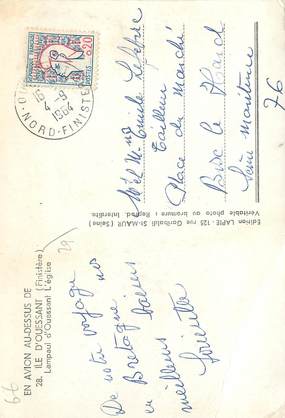 EN AVION AU-DESSUS DE
28. ILE D'OUESSANT (Finistère)
Lampaul d'Ouessant L'église
De notre voyage en
Bretagne nos
meilleurs baisers
Edition LAPIE - 125 rue Garibaldi St-MAUR (Seine)
Véritable photo au bromure : Reprod. Interdite.
0,20
16
4 - 9
1964
NORD-FINISTE
M et Mme Emile Lefebvre
Tailleur
Place du Marché
Seine Maritime
76